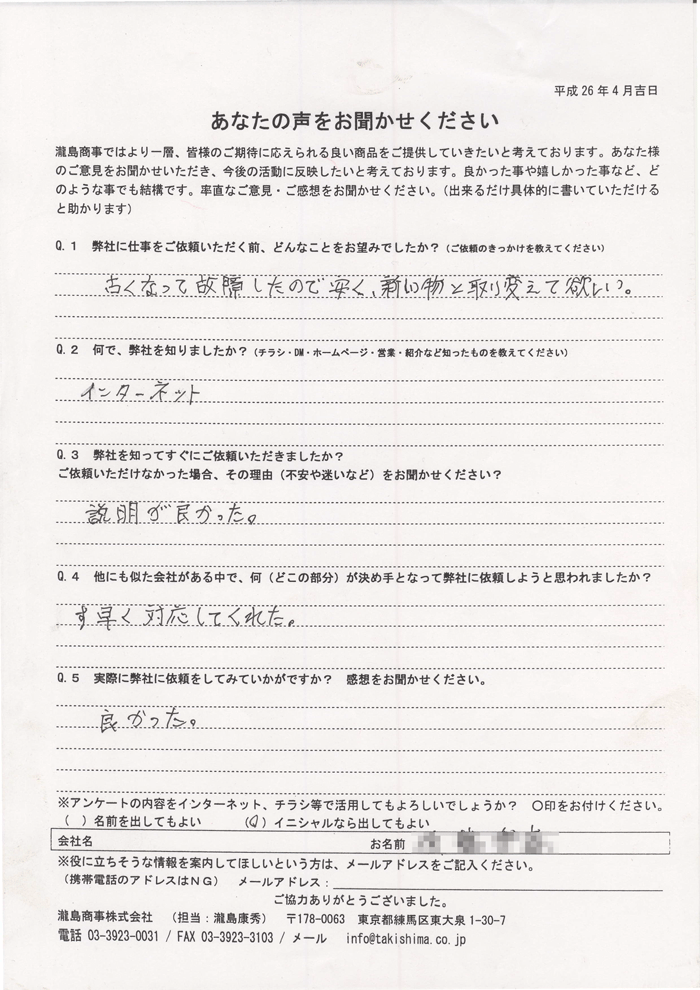 平成26年4月吉日
あなたの声をお聞かせください
瀧島商事ではより一層、皆様のご期待に応えられる良い商品をご提供していきたいと考えております。あなた様
のご意見をお聞かせいただき、今後の活動に反映したいと考えております。良かった事や嬉しかった事など、ど
のような事でも結構です。率直なご意見・ご感想をお聞かせください。(出来るだけ具体的に書いていただける
と助かります)
Q.1 弊社に仕事をご依頼いただく前、どんなことをお望みでしたか?(ご依頼のきっかけを教えてください)
古くなって故障したので安く、新い物と取り変えて欲しい。
Q.2 何で、弊社を知りましたか?(チラシ・DM・ホームページ・営業・紹介など知ったものを教えてください)
インターネット
Q.3 弊社を知ってすぐにご依頼いただきましたか?
ご依頼いただけなかった場合、その理由(不安や迷いなど)をお聞かせください?
説明が良かった。
Q.4 他にも似た会社がある中で、何(どこの部分)が決め手となって弊社に依頼しようと思われましたか?
す早く対応してくれた。
Q.5 実際に弊社に依頼をしてみていかがですか? 感想をお聞かせください。
良かった。
※アンケートの内容をインターネット、チラシ等で活用してもよろしいでしょうか? 〇印をお付けください。
( )名前を出してもよい (〇)イニシャルなら出してもよい
会社名 お名前
※役に立ちそうな情報を案内してほしいという方は、メールアドレスをご記入ください。
(携帯電話のアドレスはNG) メールアドレス:
ご協力ありがとうございました。
瀧島商事株式会社 (担当:瀧島康秀) 〒178-0063 東京都練馬区東大泉1-30-7
電話 03-3923-0031 / FAX 03-3923-3103 / メール info@takishima.co.jp